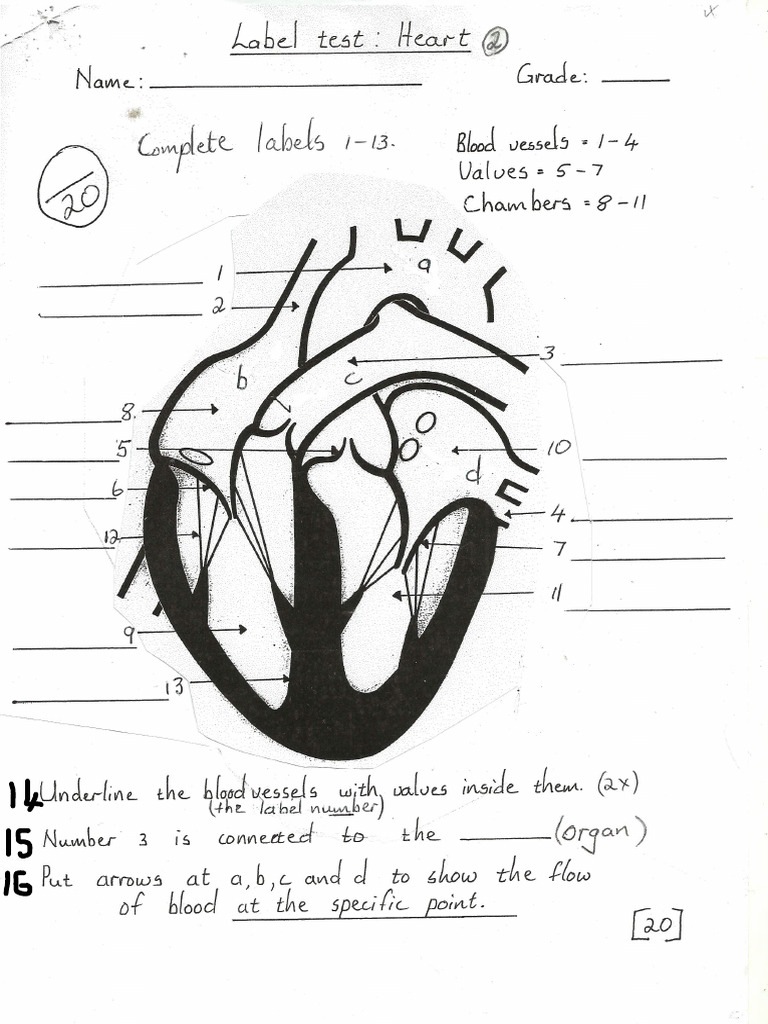 Label test: Heart 2
Name: Grade:
Complete labels 1-13.
Blood vessels = 1-4
Values = 5-7
Chambers = 8-11
20
1
a
2
3
b
c
8
5
10
d
6
4
12
7
11
9
13
14 Underline the blood vessels with values inside them. (2x)
(the label number)
15 Number 3 is connected to the (organ)
16 Put arrows at a, b, c and d to show the flow
of blood at the specific point.
[20]